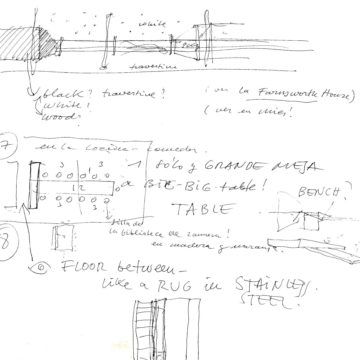 white
travertine
black? travertine? (on la Farnsworth House)
white! (ver en mies!
wood?
7 en la cocina-comedor.
3 3 1 sólo y GRANDE MEJA
1 2 a BIG-BIG table! BENCH?
3 TABLE
silla de
la biblioteca de zamora!
8 en madera y naranja.
FLOOR between-
like a RUG in STAINLESS
STEEL.